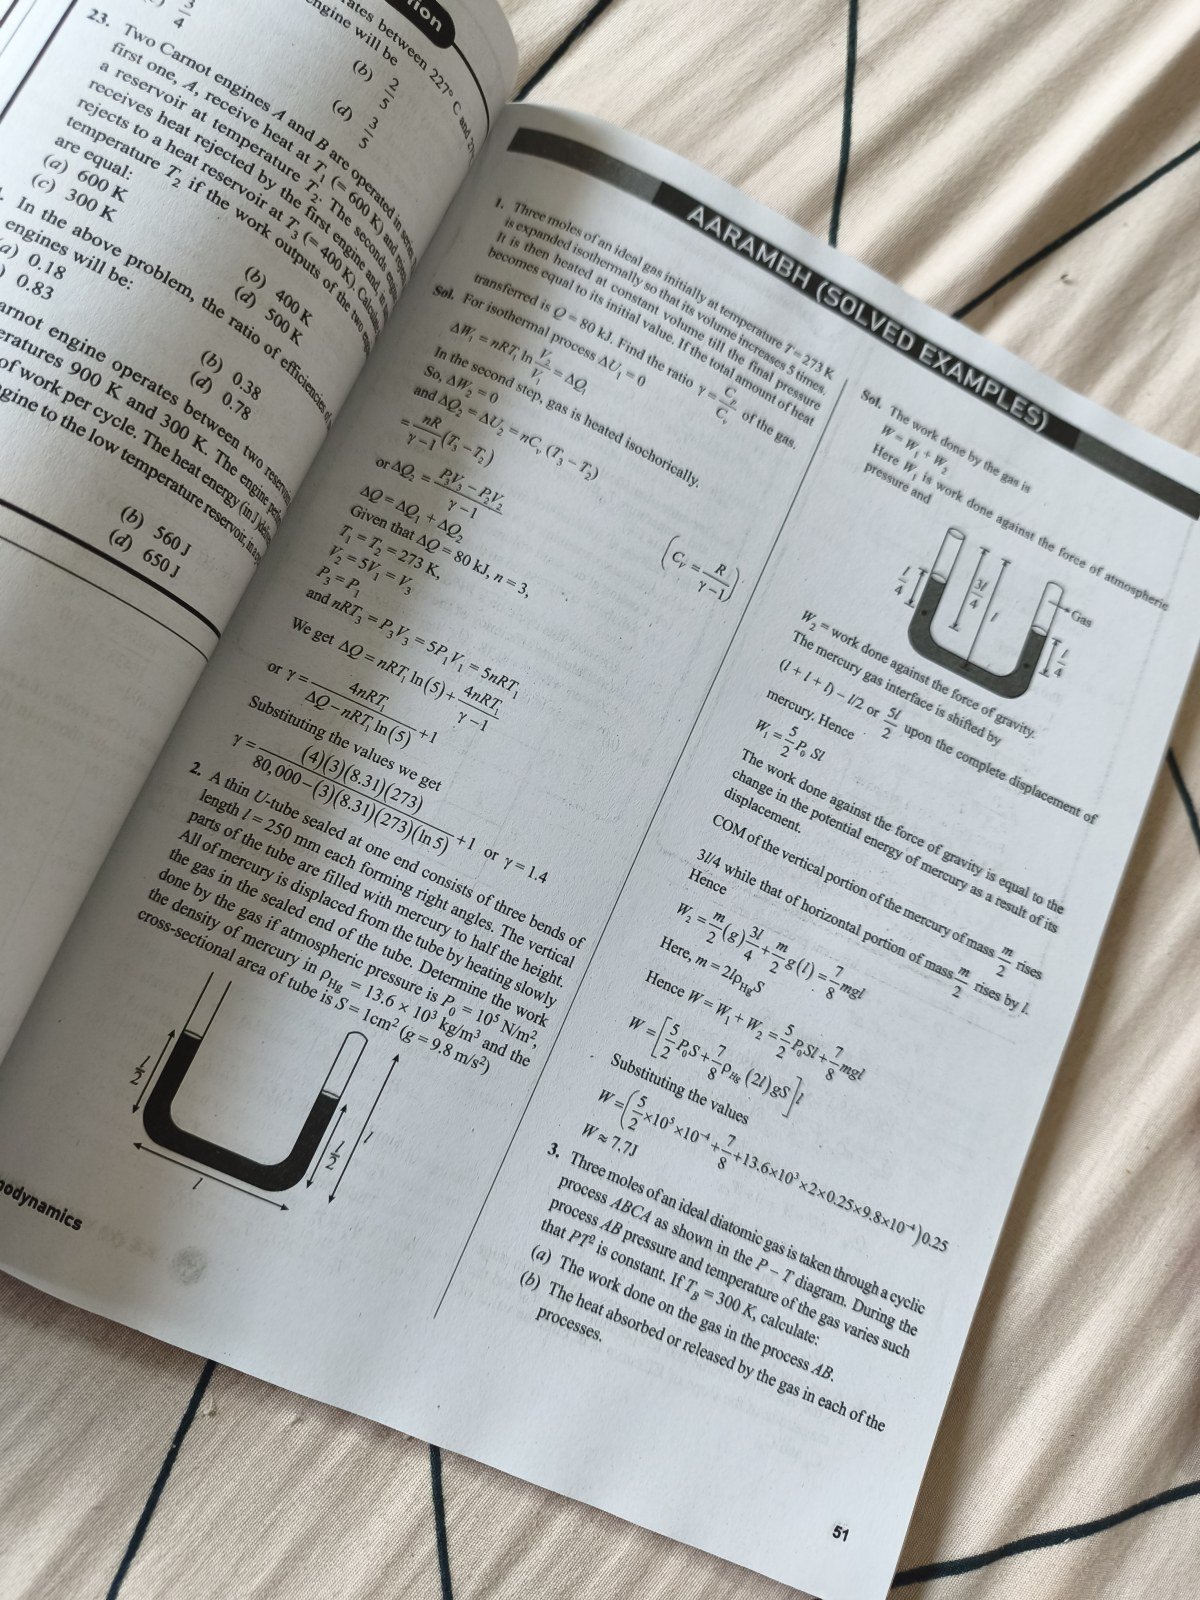 ion
ates between 227° C and
engine will be
3/4
(b) 2/5
(d) 3/5
23. Two Carnot engines A and B are operated in
first one, A, receive heat at T1 (= 600 K) and
a reservoir at temperature T2. The second
receives heat rejected by the first engine and, in
rejects to a heat reservoir at T3 (= 400 K).
temperature T2 if the work outputs of the two
are equal:
(a) 600 K
(b) 400 K
(c) 300 K
(d) 500 K
In the above problem, the ratio of efficiencies of
engines will be:
0.18
(b) 0.38
0.83
(d) 0.78
arnot engine operates between two
eratures 900 K and 300 K. The engine
of work per cycle. The heat energy (in J)
gine to the low temperature reservoir, in
(b) 560 J
(d) 650 J
odynamics
AARAMBH (SOLVED EXAMPLES)
1. Three moles of an ideal gas initially at temperature T = 273 K
is expanded isothermally so that its volume increases 5 times.
It is then heated at constant volume till the final pressure
becomes equal to its initial value. If the total amount of heat
transferred is Q = 80 kJ. Find the ratio γ = Cp/Cv of the gas.
Sol. For isothermal process ΔU1 = 0
ΔW1 = nRT1 ln V2/V1 = ΔQ1
In the second step, gas is heated isochorically.
So, ΔW2 = 0
and ΔQ2 = ΔU2 = nCv (T3 – T2)
= nR/(γ – 1) (T3 – T2)
(Cv = R/(γ – 1))
or ΔQ2 = (P3V3 – P2V2)/(γ – 1)
ΔQ = ΔQ1 + ΔQ2
Given that ΔQ = 80 kJ, n = 3,
T1 = T2 = 273 K,
V2 = 5V1 = V3
P3 = P1
and nRT3 = P3V3 = 5P1V1 = 5nRT1
We get ΔQ = nRT1 ln(5) + 4nRT1/(γ – 1)
or γ = 4nRT1/(ΔQ – nRT1 ln(5)) + 1
Substituting the values we get
γ = (4)(3)(8.31)(273)/(80,000 – (3)(8.31)(273)(ln 5)) + 1 or γ = 1.4
2. A thin U-tube sealed at one end consists of three bends of
length l = 250 mm each forming right angles. The vertical
parts of the tube are filled with mercury to half the height.
All of mercury is displaced from the tube by heating slowly
the gas in the sealed end of the tube. Determine the work
done by the gas if atmospheric pressure is P0 = 10⁵ N/m²,
the density of mercury in ρHg = 13.6 × 10³ kg/m³ and the
cross-sectional area of tube is S = 1cm² (g = 9.8 m/s²)
l/2
l
l/2
l
Sol. The work done by the gas is
W = W1 + W2
Here W1 is work done against the force of atmospheric
pressure and
l/4
3l/4
l
Gas
l/4
W2 = work done against the force of gravity.
The mercury gas interface is shifted by
(l + l + l) – l/2 or 5l/2 upon the complete displacement of
mercury. Hence
W1 = 5/2 P0 Sl
The work done against the force of gravity is equal to the
change in the potential energy of mercury as a result of its
displacement.
COM of the vertical portion of the mercury of mass m/2 rises
3l/4 while that of horizontal portion of mass m/2 rises by l.
Hence
W2 = m/2 (g) 3l/4 + m/2 g(l) = 7/8 mgl
Here, m = 2lρHgS
Hence W = W1 + W2 = 5/2 P0Sl + 7/8 mgl
W = [5/2 P0S + 7/8 ρHg (2l)gS] l
Substituting the values
W = (5/2 ×10⁵ ×10⁻⁴ + 7/8 +13.6×10³ ×2×0.25×9.8×10⁻⁴)0.25
W ≈ 7.7J
3. Three moles of an ideal diatomic gas is taken through a cyclic
process ABCA as shown in the P – T diagram. During the
process AB pressure and temperature of the gas varies such
that PT² is constant. If TB = 300 K, calculate:
(a) The work done on the gas in the process AB.
(b) The heat absorbed or released by the gas in each of the
processes.
51